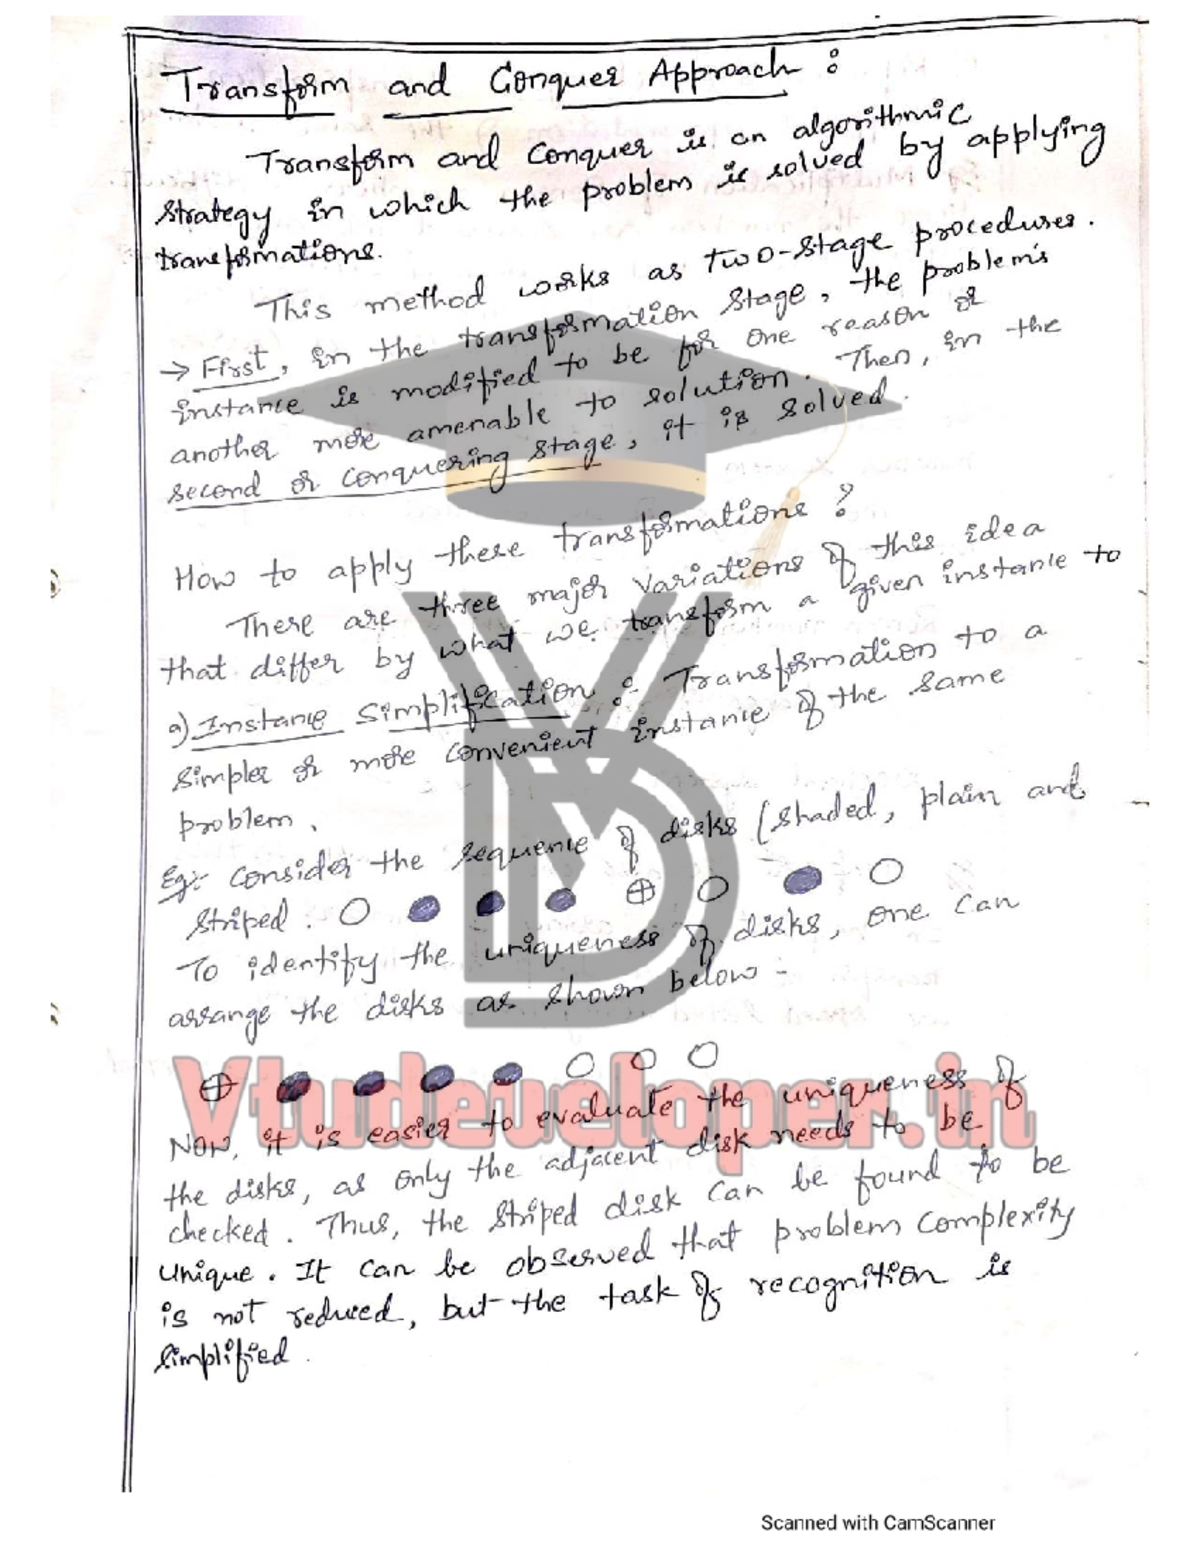 Transform and Conquer Approach :
Transform and Conquer is an algorithmic
strategy in which the problem is solved by applying
transformations.
This method works as two-stage procedures.
→ First, in the transformation stage, the problem's
instance is modified to be for one reason or
another more amenable to solution. Then, in the
second or conquering stage, it is solved.
How to apply these transformations ?
There are three major variations of this idea
that differ by what we transform a given instance to
a) Instance Simplification :- Transformation to a
simpler or more convenient instance of the same
problem.
Eg:- Consider the sequence of disks (shaded, plain and
striped.
To identify the uniqueness of disks, one can
arrange the disks as shown below -
Vtudeveloper.in
Now, it is easier to evaluate the uniqueness of
the disks, as only the adjacent disk needs to be
checked. Thus, the striped disk can be found to be
unique. It can be observed that problem complexity
is not reduced, but the task of recognition is
simplified.
Scanned with CamScanner